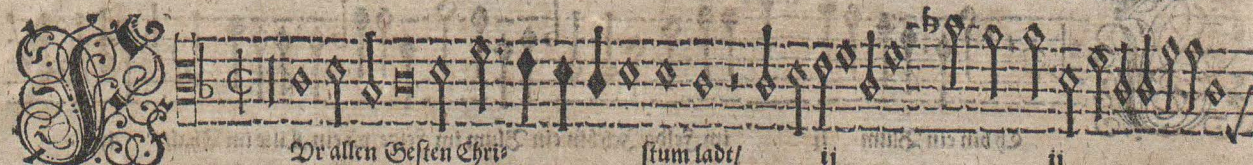 Vor allen Gesten Chri- stum ladt/ ij ij